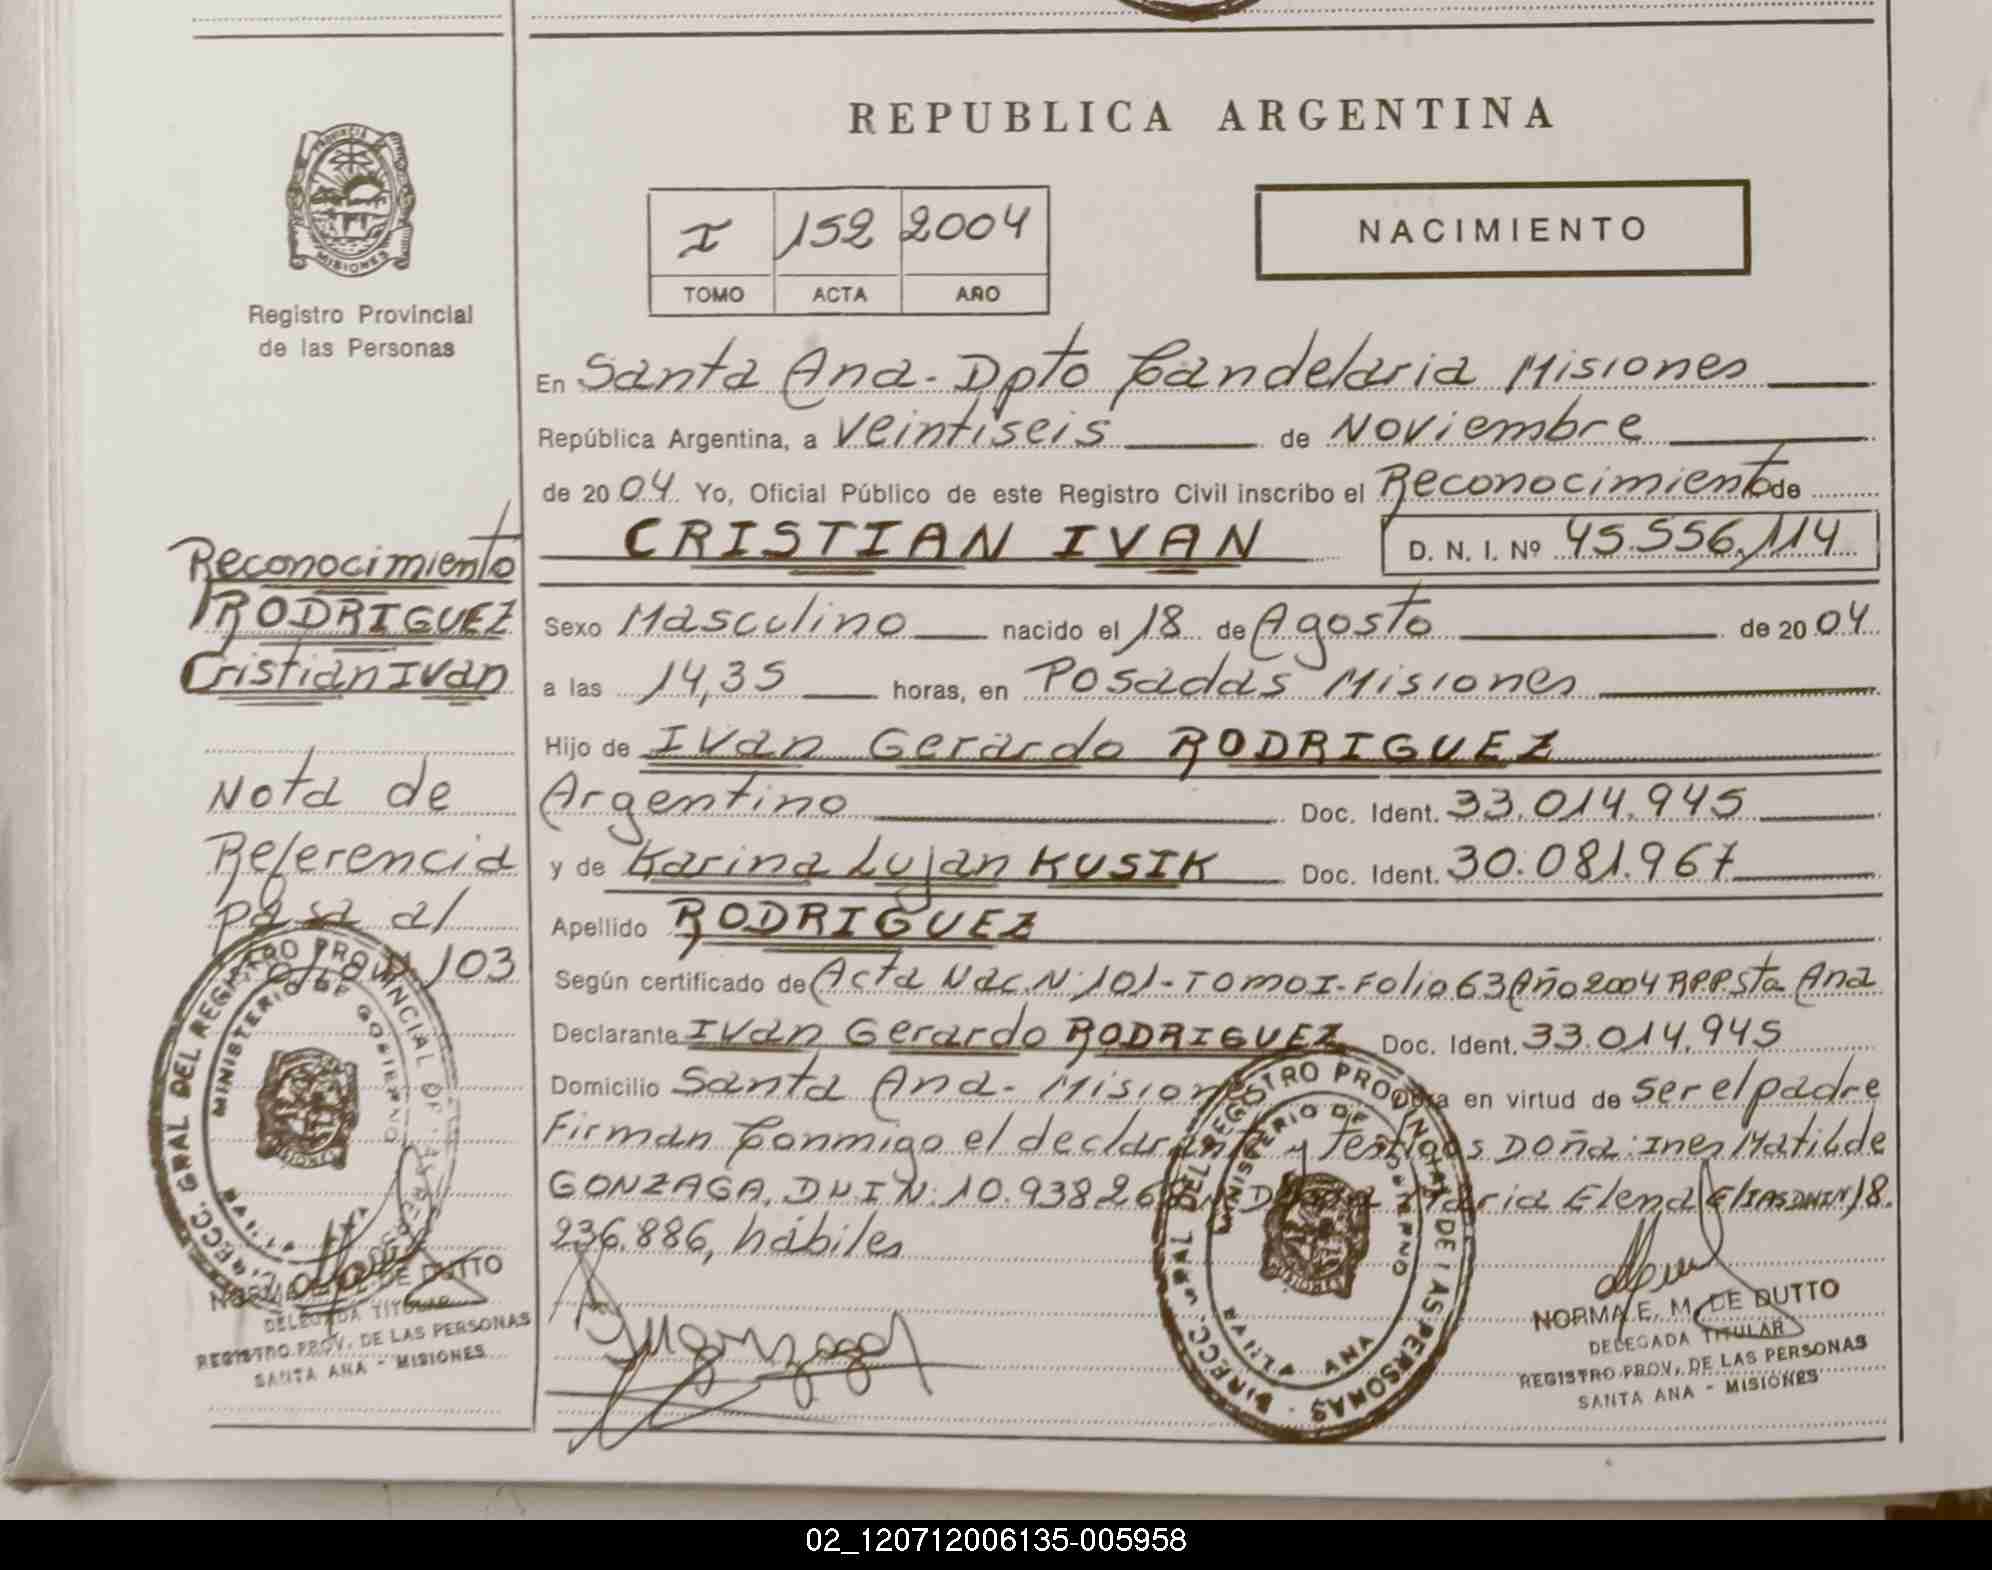 REPUBLICA ARGENTINA
PROVINCIA DE
MISIONES
Registro Provincial
de las Personas
I 152 2004
TOMO ACTA AÑO
NACIMIENTO
En Santa Ana - Dpto Candelaria Misiones
República Argentina, a Veintiseis de Noviembre
de 2004 Yo, Oficial Público de este Registro Civil inscribo el Reconocimiento de
CRISTIAN IVAN D. N. I. Nº 45.556.114
Sexo Masculino nacido el 18 de Agosto de 2004
a las 14,35 horas, en Posadas Misiones
Hijo de Ivan Gerardo RODRIGUEZ
Argentino Doc. Ident. 33.014.945
y de Karina Lujan KUSIK Doc. Ident. 30.081.967
Apellido RODRIGUEZ
Según certificado de Acta Nac. N: 101 - TOMO I - Folio 63 Año 2004 R.P.P. Sta Ana
Declarante Ivan Gerardo RODRIGUEZ Doc. Ident. 33.014.945
Domicilio Santa Ana - Misiones Obra en virtud de ser el padre
Firman Conmigo el declarante y Testigos Doña: Ines Matilde
GONZAGA, DNI N: 10.938.26 Maria Elena ELIAS DNI N 18.
236.886, hábiles
Reconocimiento
RODRIGUEZ
Cristian Ivan
Nota de
Referencia
pasa al
103
DIRECC. GRAL DEL REGISTRO PROVINCIAL DE LAS PERSONAS
MINISTERIO DE GOBIERNO
NORMA E. M. DE DUTTO
DELEGADA TITULAR
REGISTRO PROV. DE LAS PERSONAS
SANTA ANA - MISIONES
DIRECC. GRAL DEL REGISTRO PROVINCIAL DE LAS PERSONAS
MINISTERIO DE GOBIERNO
ANA
NORMA E. M. DE DUTTO
DELEGADA TITULAR
REGISTRO PROV. DE LAS PERSONAS
SANTA ANA - MISIONES
02_120712006135-005958